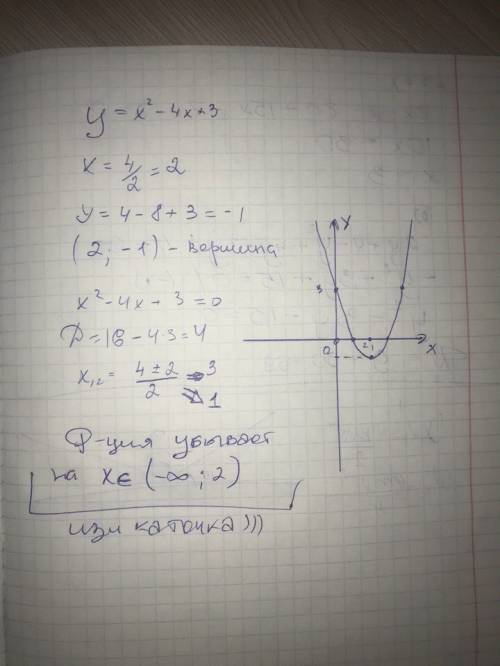 y = x² - 4x + 3
x = 4/2 = 2
y = 4 - 8 + 3 = -1
(2; -1) - вершина
x² - 4x + 3 = 0
D = 16 - 4·3 = 4
x₁,₂ = (4 ± 2)/2 → 3
↘ 1
Ф-ция убывает
на x ∈ (-∞; 2)
изи каточка)))
y
3
0
2
x